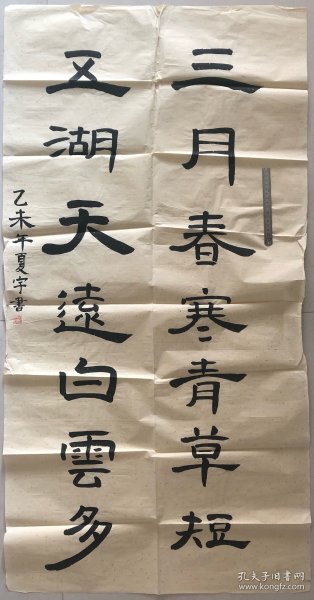 三月春寒青草短
五湖天遠白雲多
乙未年夏宇書
孔夫子旧书网
book.kongfz.com